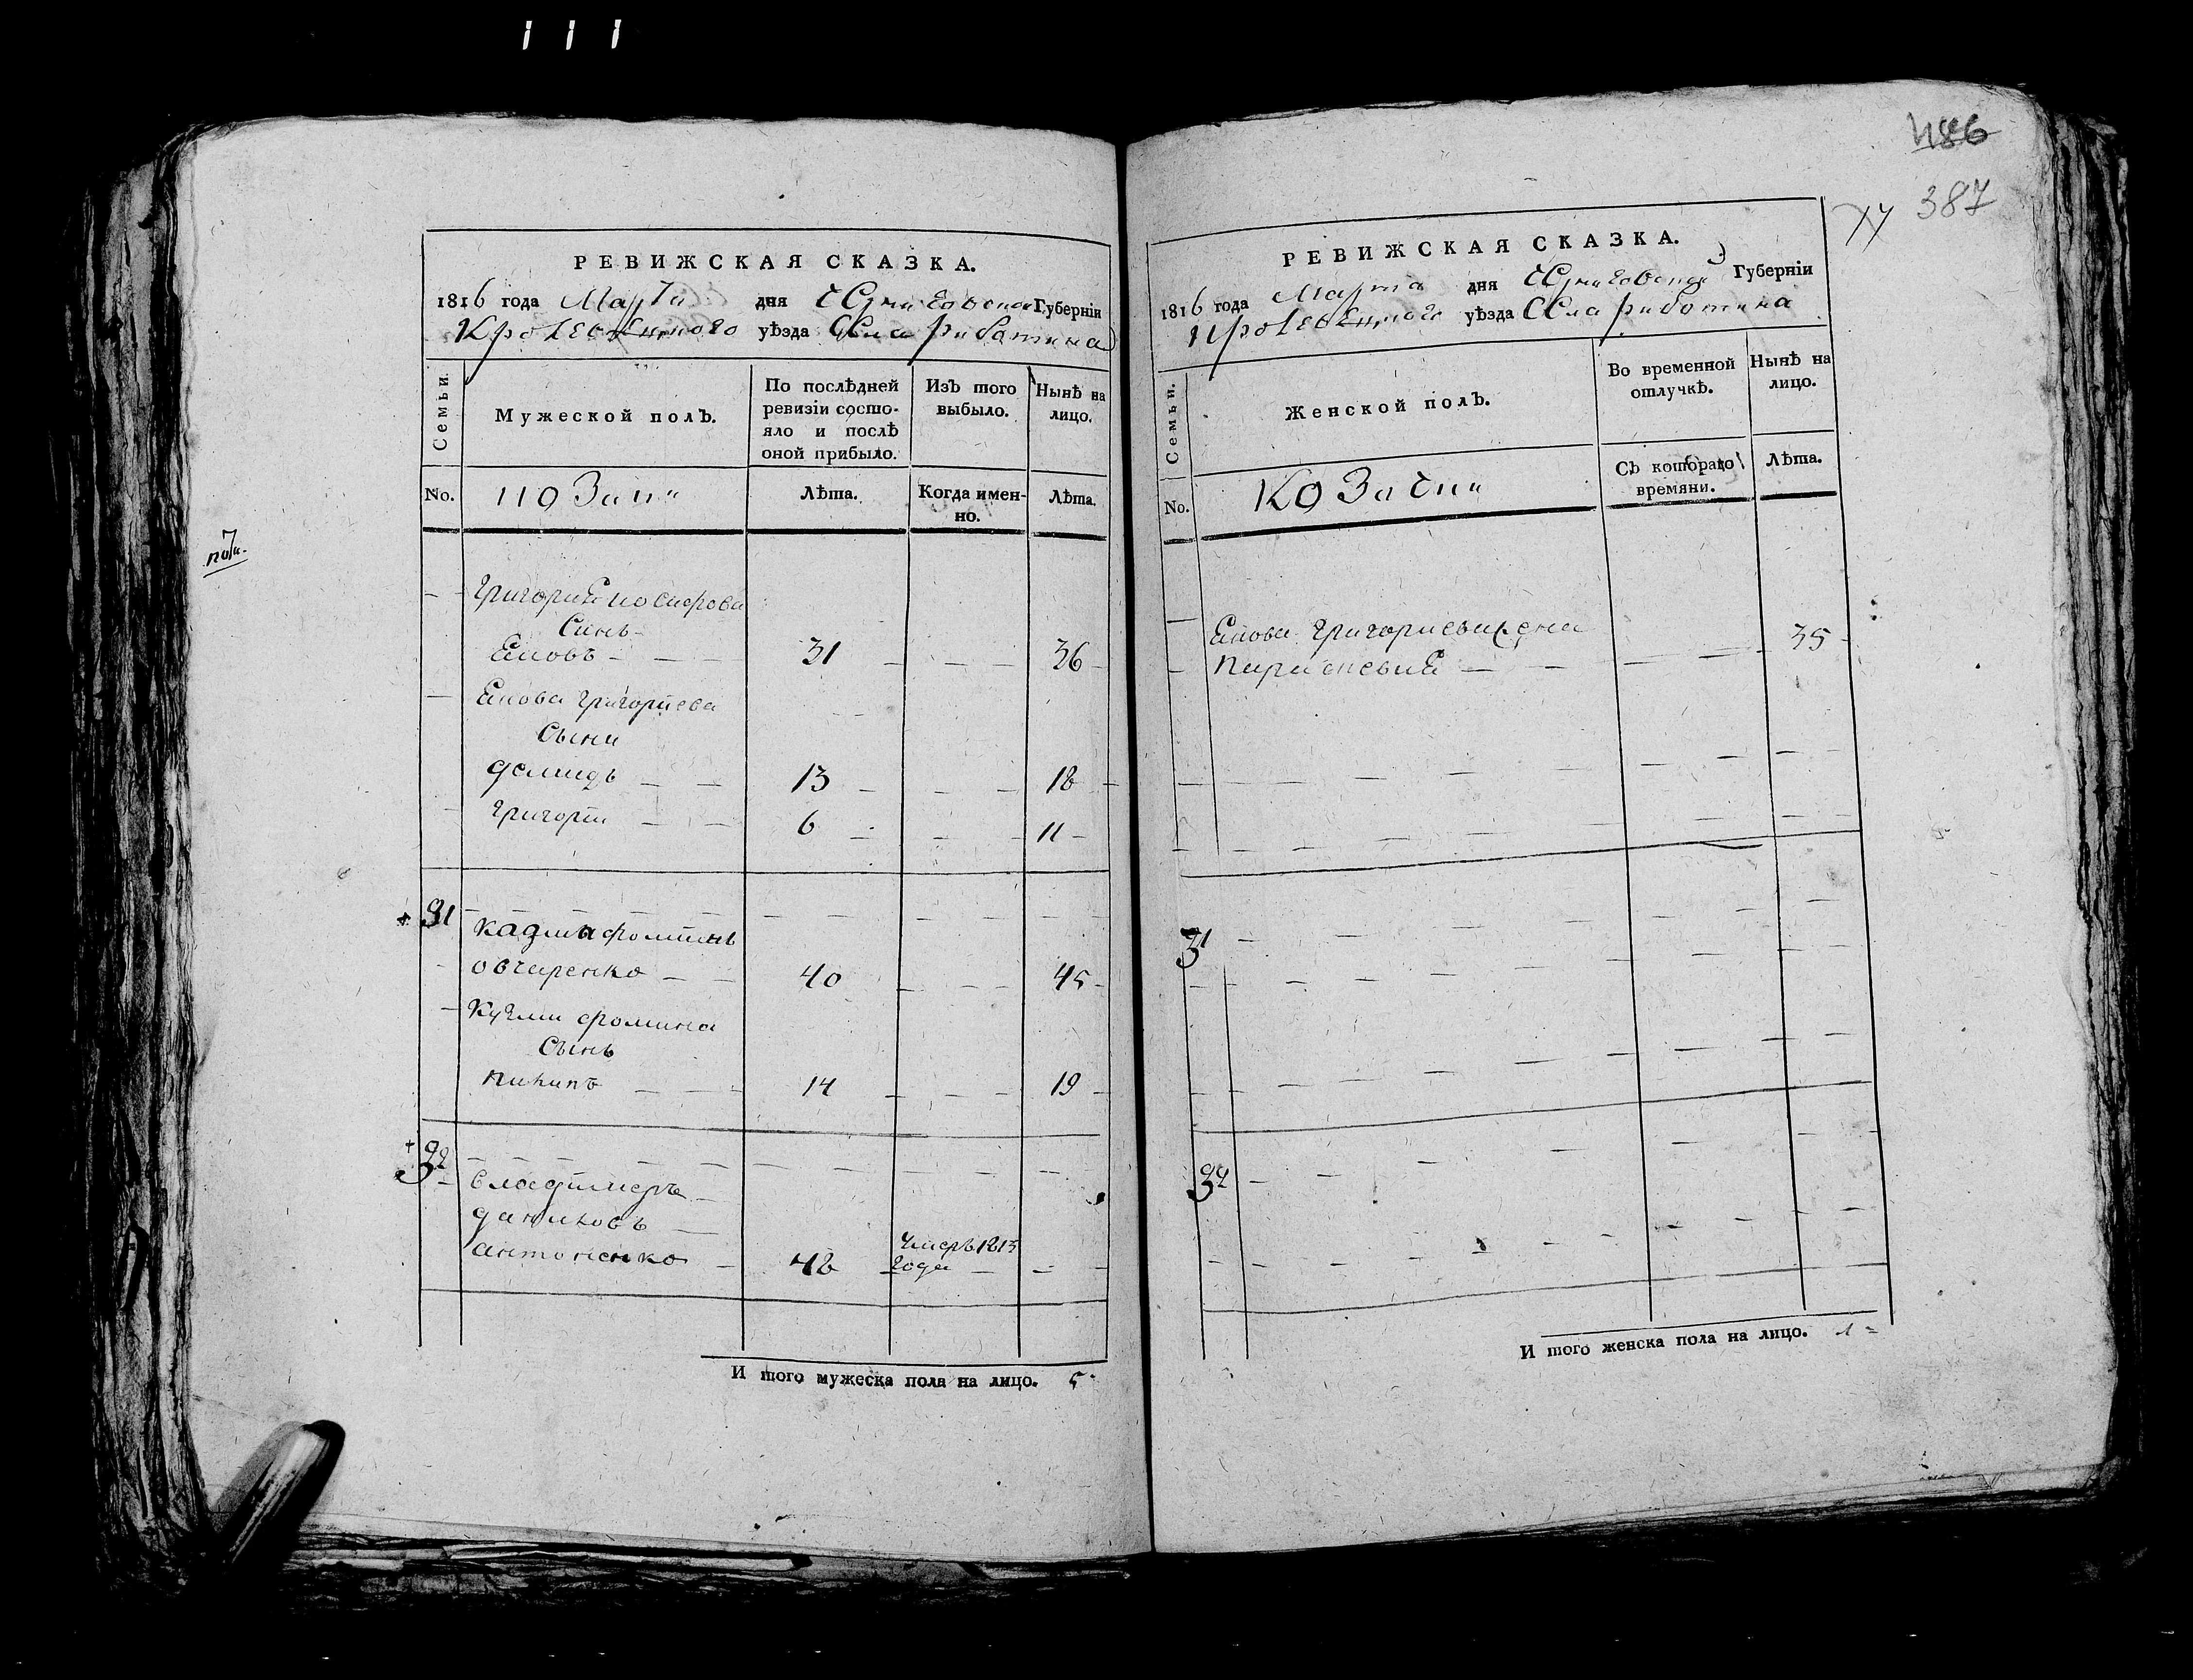 РЕВИЖСКАЯ СКАЗКА.
1816 года Марта дня Черниговской Губерніи
Кролевецкого уѣзда Села риботина
Семьи.
Мужеской полъ.
По послѣдней
ревизіи состо-
яло и послѣ
оной прибыло.
Изъ того
выбыло.
Нынѣ на
лицо.
No.
Козаки
Лѣта.
Когда имен-
но.
Лѣта.
Григория иосифова
Синъ
31
36
Григориева
Сыни
демидъ 13 18
Григорій 6 11
31
Кузма фоминъ
овчаренко 40 45
Кузми фомина
Сынъ
пилипъ 14 19
32
владимеръ
даниловъ
антоненко 48 умеръ 1813
года
И того мужеска пола на лицо. 5
486
387
РЕВИЖСКАЯ СКАЗКА.
1816 года Марта дня Черниговской Губерніи
Кролевецкого уѣзда Села риботина
Семьи.
Женской полъ.
Во временной
отлучкѣ.
Нынѣ на
лицо.
No.
Козачки
Съ котораго
времяни.
Лѣта.
Григориева жена
35
31
32
И того женска пола на лицо. 1